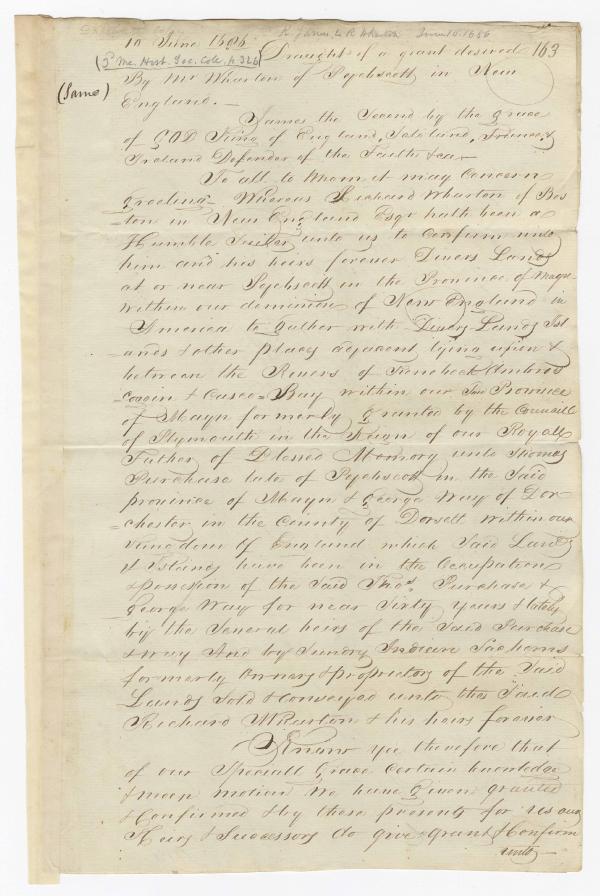 K. James to R Wharton June 10. 1686
10 June 1686 Draught of a grant desired 163
(3d Me. Hist. Soc. Col. p. 326
(Same)
By Mr Wharton of Pejebscott in New
England.—
James the Second by the grace
of GOD King of England, Scotland, France, &
Ireland Defender of the Faith &ca—
To all to whom it may Concern
greeting— Whereas Richard Wharton of Bos
ton in New England Esqr hath been a
Humble Suiter unto us to Confirm unto
him and his heirs forever Divers Lands
at or near Pejebscott in the Province of Mayne
within our dominion of New England in
America to gather with Divers Lands Isl
ands & other places adjacent lying upon &
between the Rivers of Kenebeck & Ambros
=cogin & Casco=Bay within our Said Province
of Mayn formerly granted by the Councill
of Plymouth in the Reign of our Royall
Father of Blessed Memory unto Thomas
Purchase late of Pejebscott in the Said
province of Mayn & George Way of Dor=
=chester in the County of Dorsett within our
Kingdom of England which Said Lands
& Islands have been in the Occupation
& possession of the Said Thos. Purchase &
George Way for near Sixty years & lately
by the Several heirs of the Said Purchase
& way And by Sundry Indian Sachems
formerly Owners & proprietors of the Said
Lands Sold & Conveyed unto the Said
Richard Wharton & his heirs forever
Know ye therefore that
of our Speciall Grace Certain knowledge
& meer motion We have Given granted
& Confirmed & by these presents for us our
Heirs & Successors do give grant & Confirm
unto